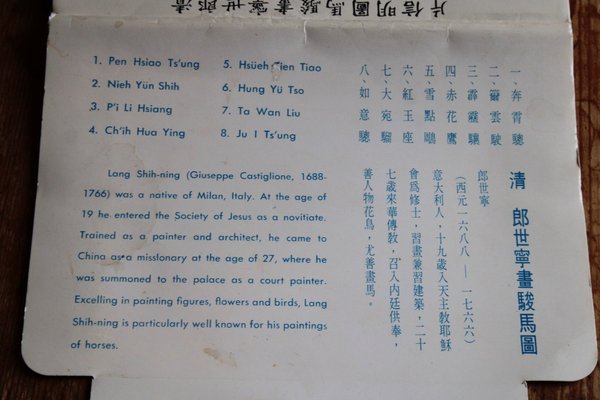 清郎世寧畫駿馬圖明信片
1. Pen Hsiao Ts'ung
2. Nieh Yün Shih
3. P'i Li Hsiang
4. Ch'ih Hua Ying
5. Hsüeh Tien Tiao
6. Hung Yü Tso
7. Ta Wan Liu
8. Ju I Ts'ung
Lang Shih-ning (Giuseppe Castiglione, 1688-
1766) was a native of Milan, Italy. At the age of
19 he entered the Society of Jesus as a novitiate.
Trained as a painter and architect, he came to
China as a missionary at the age of 27, where he
was summoned to the palace as a court painter.
Excelling in painting figures, flowers and birds, Lang
Shih-ning is particularly well known for his paintings
of horses.
一、奔霄驄
二、籋雲駛
三、霹靂驤
四、赤花鷹
五、雪點鵰
六、紅玉座
七、大宛騮
八、如意驄
清 郎世寧畫駿馬圖
郎世寧
（西元一六八八 — 一七六六）
意大利人，十九歲入天主教耶穌
會爲修士，習畫兼習建築，二十
七歲來華傳教，召入內廷供奉，
善人物花鳥，尤善畫馬。